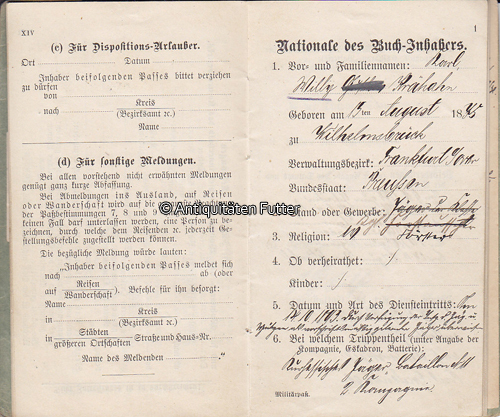 XIV
(c) Für Dispositions-Urlauber.
Ort Datum
Inhaber beifolgenden Passes bittet verziehen
zu dürfen
von
Kreis
nach (Bezirksamt ꝛc.)
Name
(d) Für sonstige Meldungen.
Bei allen vorstehend nicht erwähnten Meldungen
genügt ganz kurze Abfassung.
Bei Abmeldungen ins Ausland, auf Reisen
oder Wanderschaft wird auf die
der Paßbestimmungen 7, 8 und 9
keinen Fall darf unterlassen werden, eine Person zu be-
zeichnen, durch welche dem Reisenden ꝛc. jederzeit Ge-
stellungsbefehle zugestellt werden können.
Die bezügliche Meldung würde lauten:
„Inhaber beifolgenden Passes meldet sich
nach ab (oder
auf Reisen
Wanderschaft). Befehle für ihn besorgt:
Name
in Kreis
(Bezirksamt ꝛc.)
in Städten
größeren Ortschaften Straße und Haus-Nr.
Name des Meldenden .“
1
Nationale des Buch-Inhabers.
1. Vor- und Familiennamen: Karl
Willy
Geboren am 17ten August 1885
zu Wilhelmsbruch
Verwaltungsbezirk: Frankfurt/Oder
Bundesstaat: Preußen
2. Stand oder Gewerbe: Jäger
3. Religion: ev Förster
4. Ob verheirathet: /.
Kinder: /.
5. Datum und Art des Diensteintritts: Am
10 1903
6. Bei welchem Truppentheil (unter Angabe der
Kompagnie, Eskadron, Batterie):
Kurhessisches Jäger Bataillon № 11
2 Kompagnie.
Militärpaß.
© Antiquitäten Futter